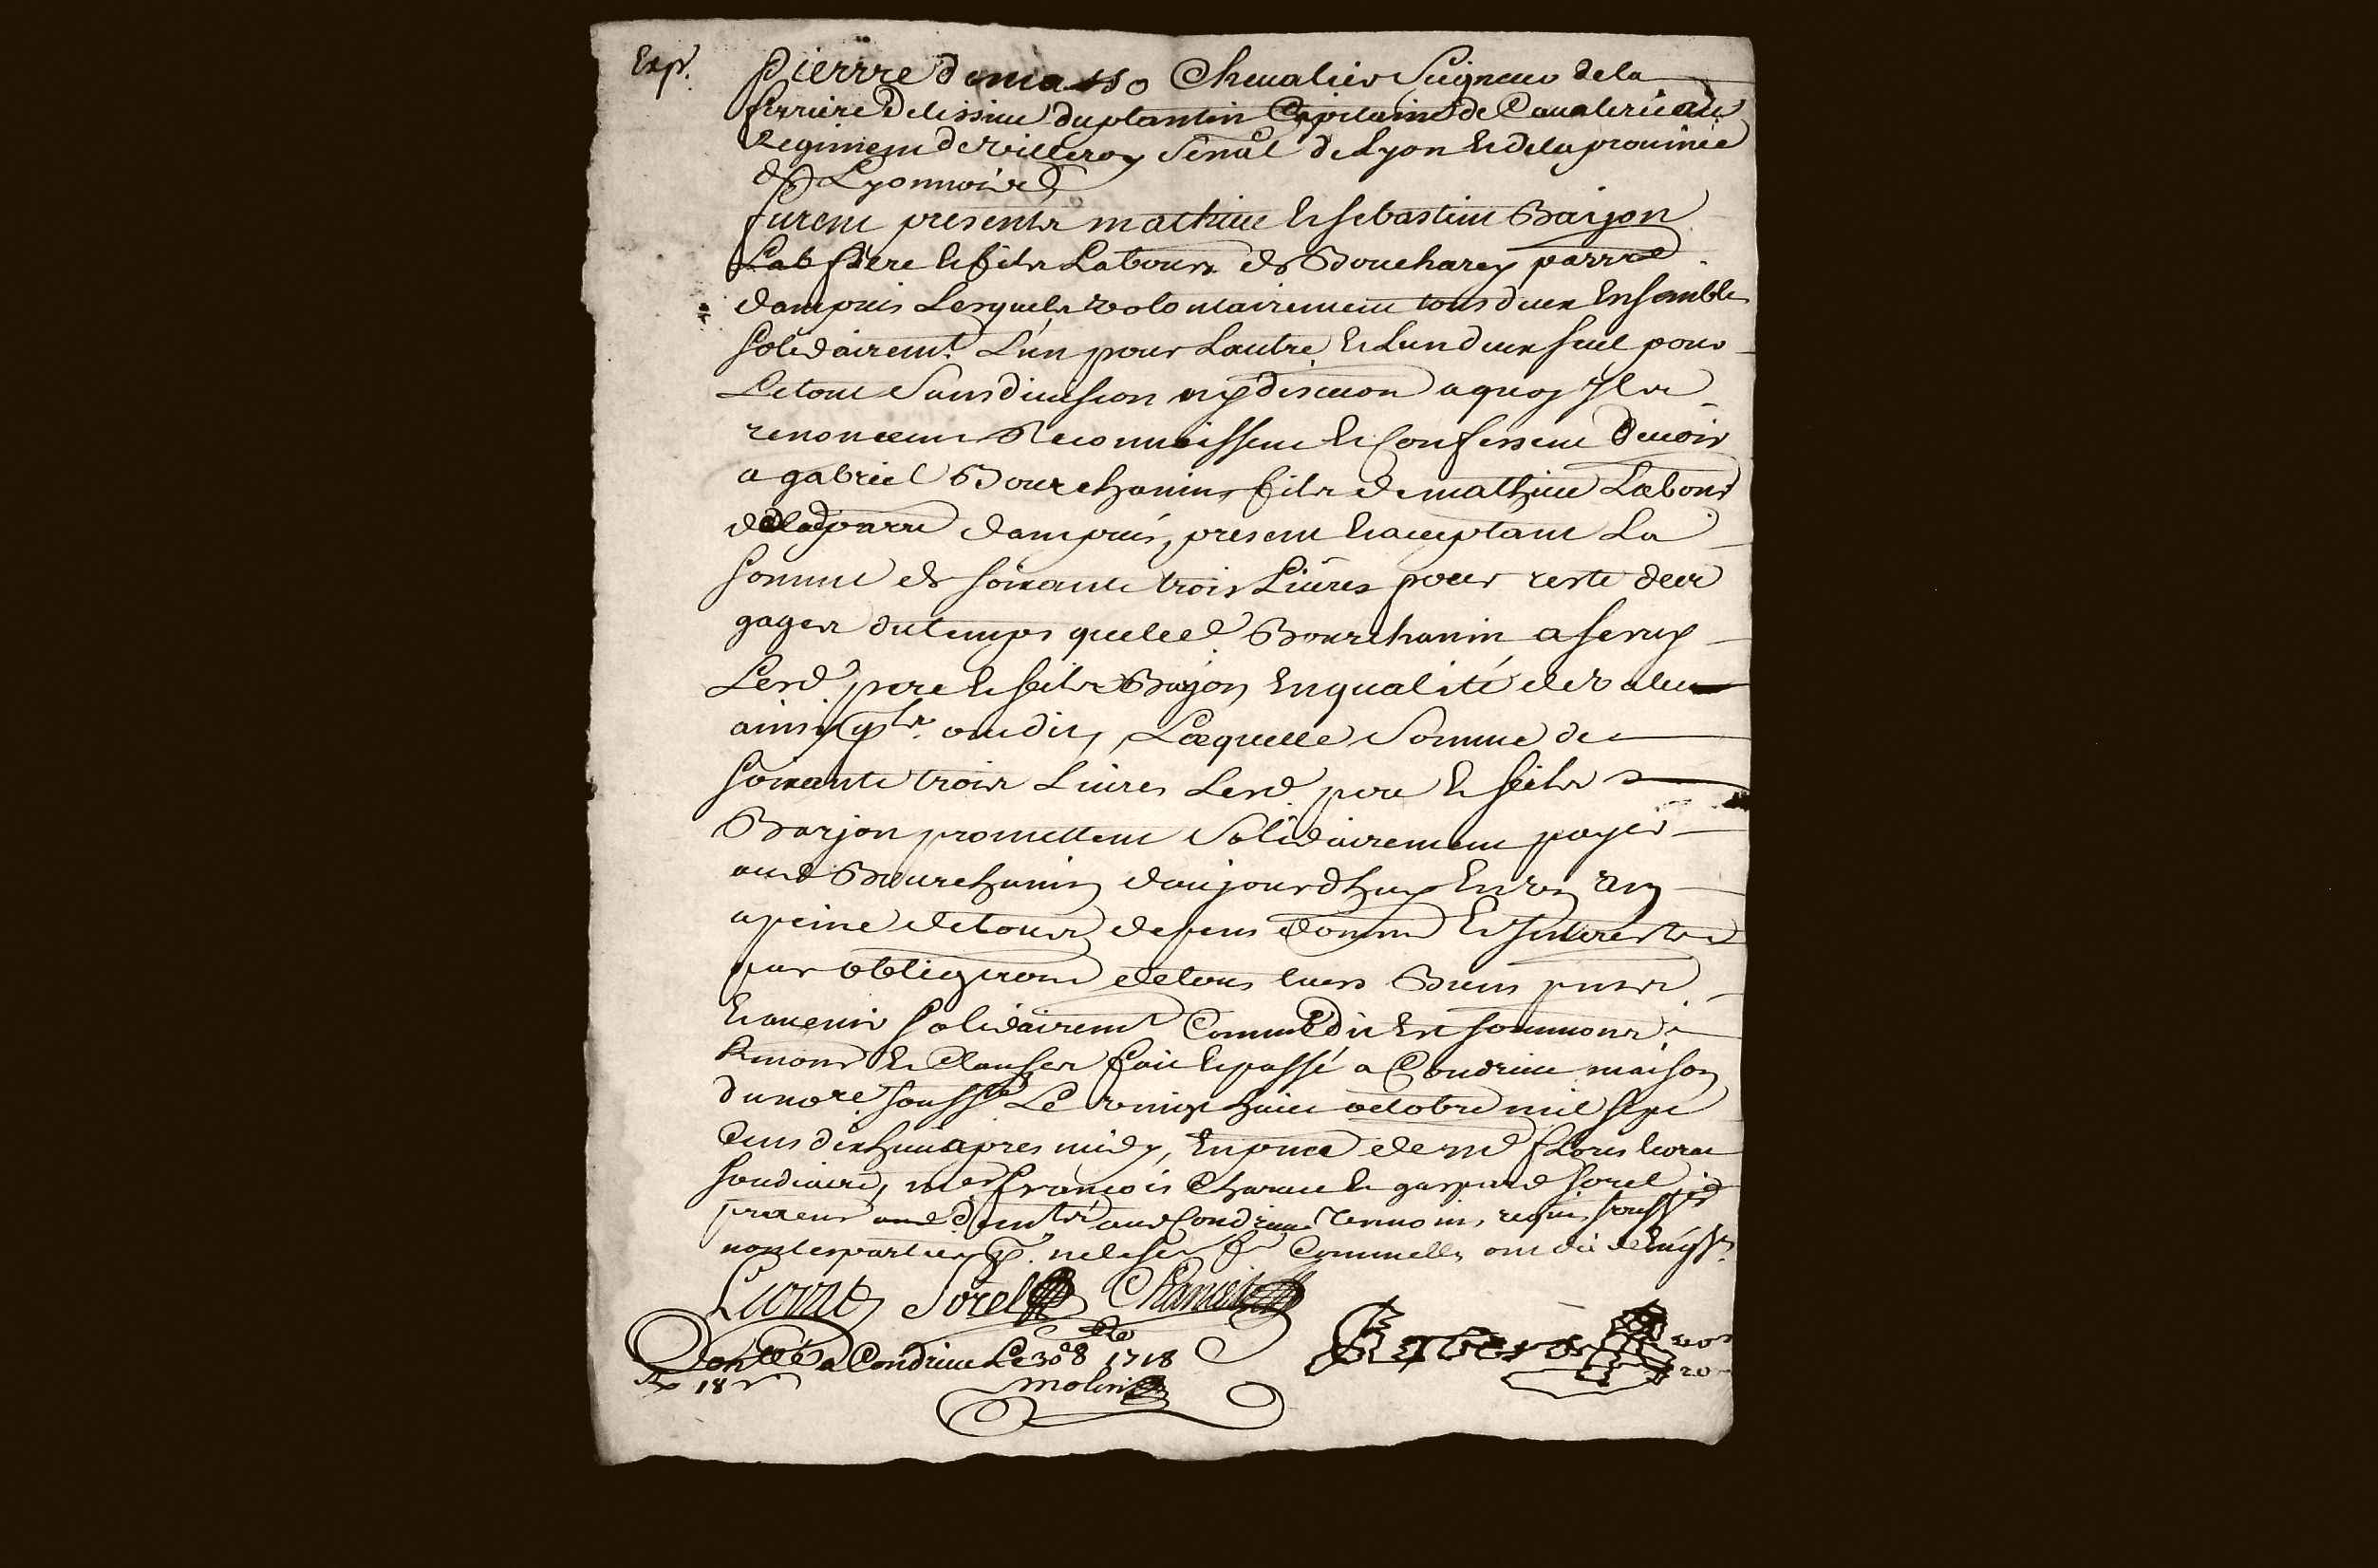 Exp.
Pierrre demasso Chevalier Seigneur dela
ferriere Delissieu duplantin Capitaine de Cavalerie au
Regiment de villeroy Senal de Lyon et dela province
de Lyonnois
furent presents mathieu et sebastien Barjon
Lab pere et fils Labours de Boucharey parrse
dampuis Lesquels volontairement tous deux Ensemble
solidairemt. L'un pour Lautre et Lun deux seul pour
Letout Sans division ny discuon a quoy Ils
renoncent Reconnoissent et Confessent devoir
a gabriel Bourchanin fils de mathieu Labour
dela parre dampuis, present et acceptant La
somme de soixante trois Livres pour reste des
gages du temps queled. Bourchanin a servy
Lesd. pere et fils Barjon En qualité de valet
ainsy qls. ont dit, Laquelle Somme de
soixante trois Livres Lesd. pere et fils
Barjon promettent Solidairement payer
aud Bourchanin daujourdhuy En un an
a peine de tous despens domm Et Interests
par obligaon de tous leurs Biens pnts
Et avenir solidairemt Comme dit Est soummons
Renons Et Clauses fait et passé a Condrieu maison
du nore soussé Le vingt huit octobre mil sept
Cens dix huit apres midy, En pnce de md floris
François et gaspard sorel
Condrieu Temoins requis soussés
non les parties p. ne le scavoir Comme elles ont dit de Enqs.
Sorel
Conllé a Condrieu Le 30 8 1718
18
molin